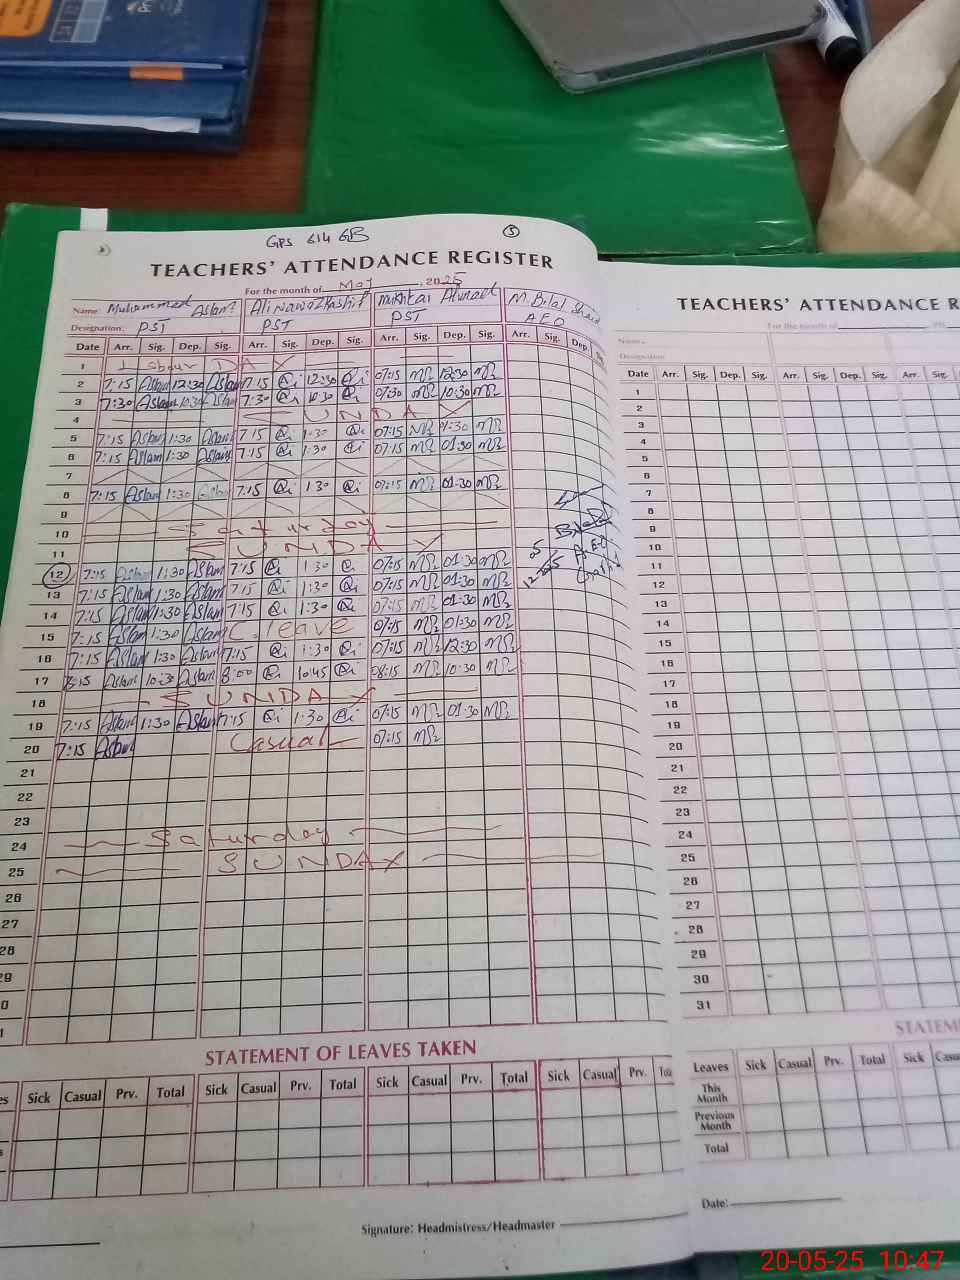 GPS 614 GB
5
TEACHERS' ATTENDANCE REGISTER
For the month of May, 2025
Name: Muhammad Aslam Ali Nawaz Kashif Mukhtar Ahmad M. Bilal
Designation: PST PST PST AEO
Date Arr. Sig. Dep. Sig. Arr. Sig. Dep. Sig. Arr. Sig. Dep. Sig. Arr. Sig. Dep.
1 Labour DAY
2 7:15 Aslam 12:30 Aslam 7:15 12:30 07:15 12:30
3 7:30 Aslam 10:30 Aslam 7:30 10:30 07:30 10:30
4 SUNDAY
5 7:15 Aslam 1:30 Aslam 7:15 1:30 07:15 1:30
6 7:15 Aslam 1:30 Aslam 7:15 1:30 07:15 01:30
7
8 7:15 Aslam 1:30 Aslam 7:15 1:30 07:15 01:30
9
10 Saturday
11 SUNDAY
12 7:15 Aslam 1:30 Aslam 7:15 1:30 07:15 01:30
13 7:15 Aslam 1:30 Aslam 7:15 1:30 07:15 01:30
14 7:15 Aslam 1:30 Aslam 7:15 1:30 07:15 01:30
15 7:15 Aslam 1:30 Aslam C. leave 07:15 01:30
16 7:15 Aslam 1:30 Aslam 7:15 1:30 07:15 12:30
17 8:15 Aslam 10:30 Aslam 8:00 10:45 08:15 10:30
18 SUNDAY
19 7:15 Aslam 1:30 Aslam 7:15 1:30 07:15 01:30
20 7:15 Aslam Casual 07:15
21
22
23
24 Saturday
25 SUNDAY
26
27
28
29
0
1
STATEMENT OF LEAVES TAKEN
Sick Casual Prv. Total Sick Casual Prv. Total Sick Casual Prv. Total Sick Casual Prv.
Signature: Headmistress/Headmaster
TEACHERS' ATTENDANCE R
For the month of
Name:
Designation:
Date Arr. Sig. Dep. Sig. Arr. Sig. Dep. Sig. Arr. Sig.
1
2
3
4
5
6
7
8
9
10
11
12
13
14
15
16
17
18
19
20
21
22
23
24
25
26
27
28
29
30
31
STATEM
Leaves Sick Casual Prv. Total Sick Casu
This Month
Previous Month
Total
Date:
20-05-25 10:47